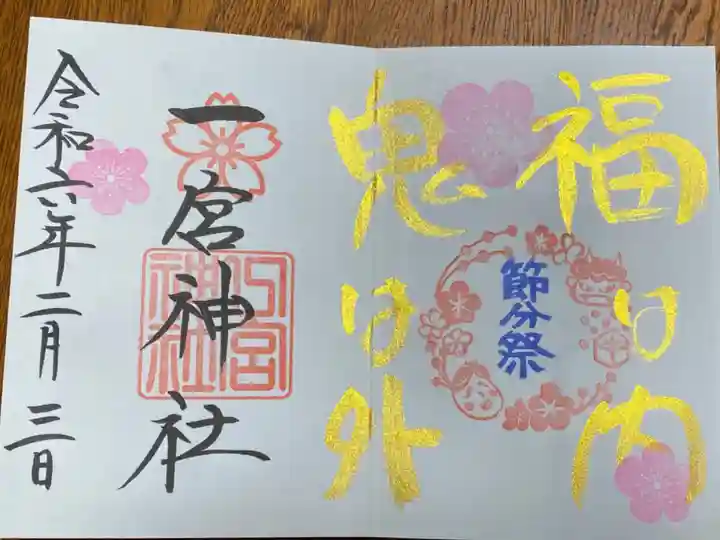 福は内
節分祭
鬼は外
一宮神社
一宮神社
令和六年二月三日